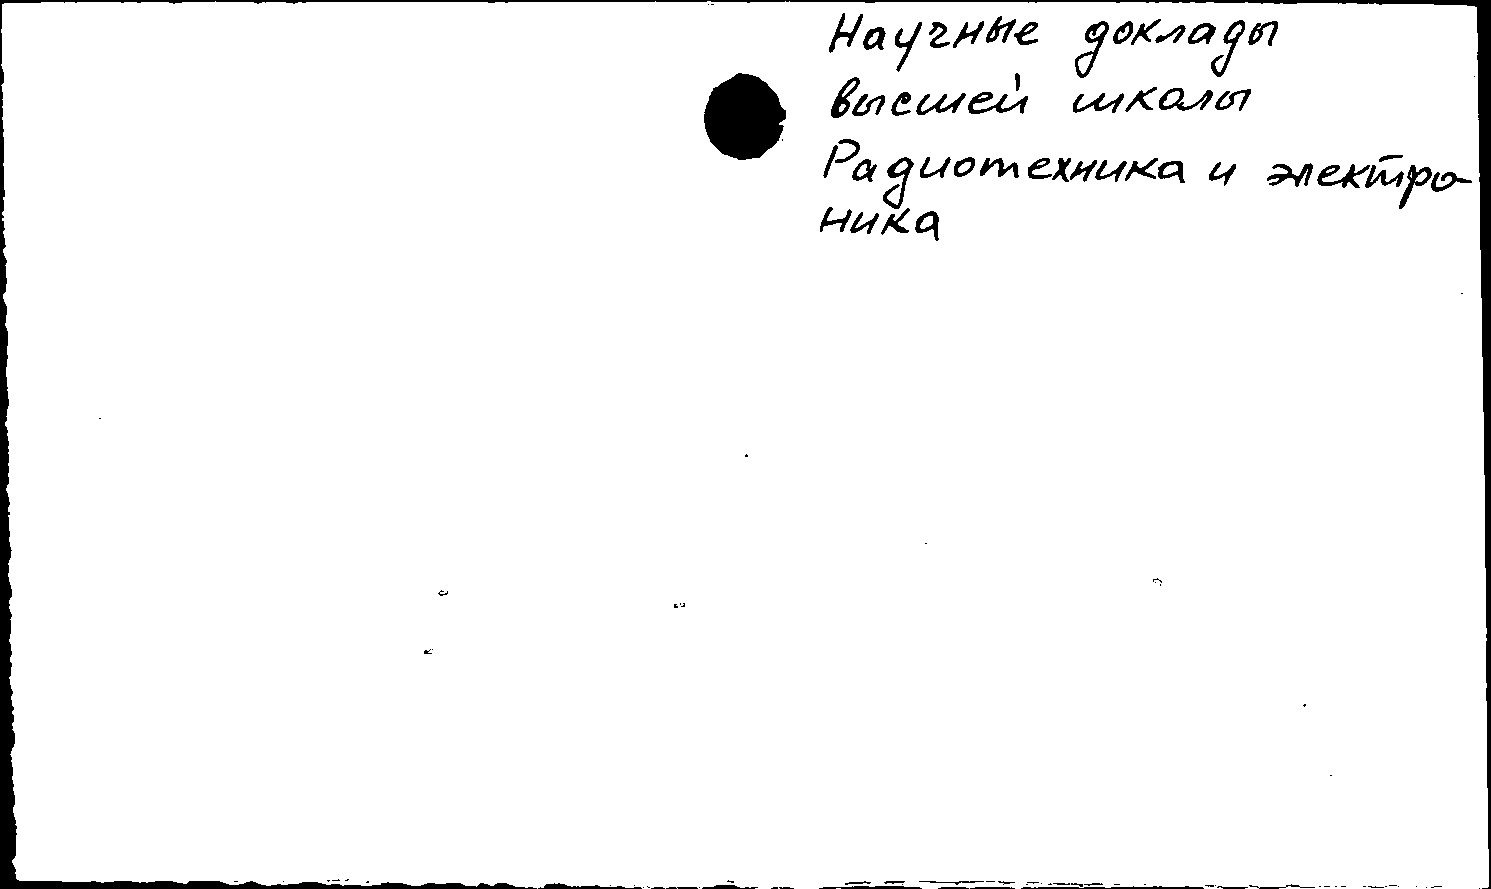 Научные доклады
высшей школы
Радиотехника и электро-
ника